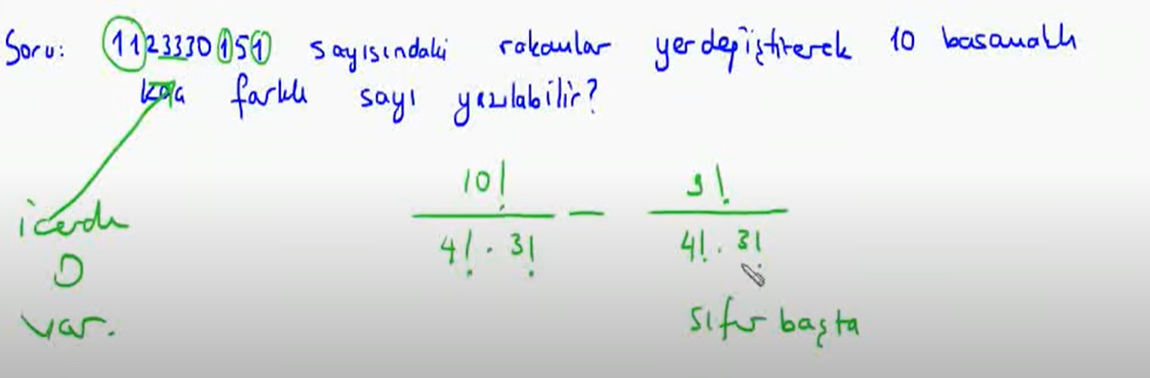 Soru: 1123330151 sayısındaki rakamlar yerdeğiştirerek 10 basamaklı
kaç farklı sayı yazılabilir?
10! / 4! . 3! - 9! / 4! . 3!
içerde
0
var.
sıfır başta